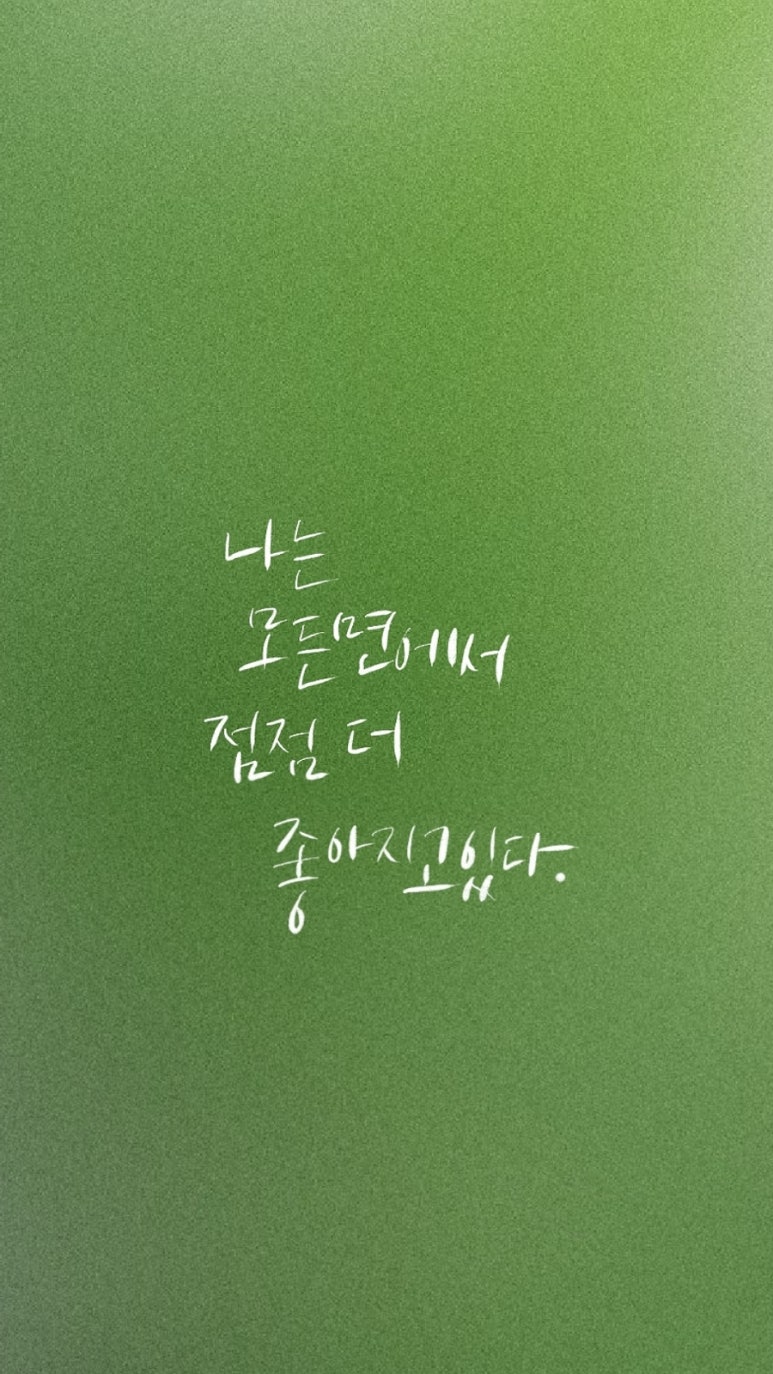 나는
모든면에서
점점 더
좋아지고있다.